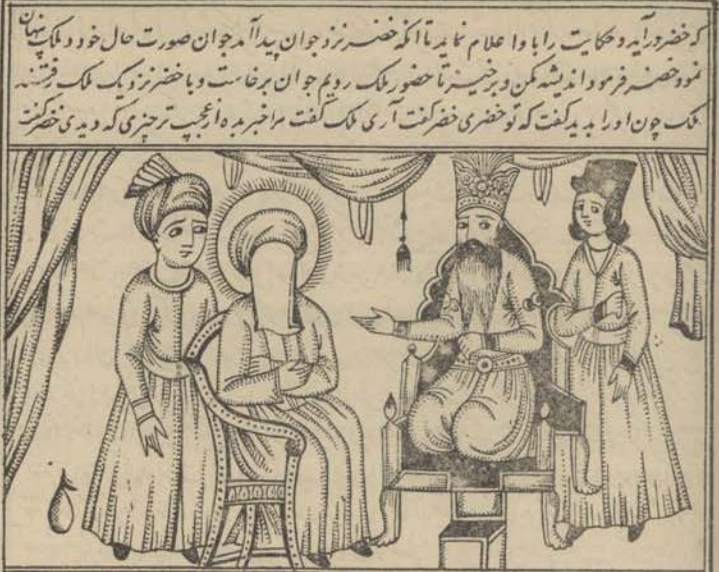 که خضر درآید و حکایت را با وا علام نماید تا انکه خضر نزد جوان پیدا آمد جوان صورت حال خود و ملک پنهان
نمود خضر فرمود اندیشه مکن و برخیز تا حضور ملک رویم جوان برخاست و با خضر نزدیک ملک رفتند
ملک چون او را بدید گفت که تو خضری خضر گفت آری ملک گفت مرا خبر بده از عجیب تر چیزی که دیدی خضر گفت